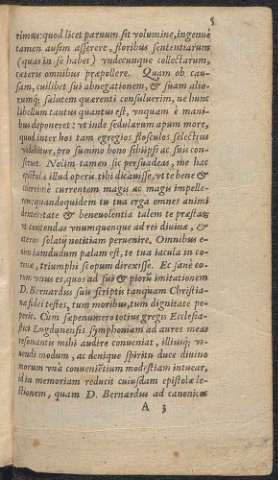 5
rimus: quod licet parnum sit volumine, ingenuè
tamen ausim asserere, floribus sententiarum
(quas in se habet) vndecunque collectarum,
ceteris omnibus præpollere. Quam ob cau-
sam, cuilibet sui abnegationem, & suam alio-
rumq; salutem quærenti consuluerim, ne hunc
libellum tantus quantus est, vnquam è mani-
bus deponeret: vt inde sedularum apum more,
quod inter hos tam egregios flosculos selectius
videbitur, pro summo bono sibiipsi ac suis con-
seruet. Nolim tamen sic persuadeas, me hac
epistola illud operu tibi dicauisse, vt te bene &
currentem magis ac magis impelle-
rem: quandoquidem tu tua erga omnes animi
& beneuolentia talem te præstas,
vt contendas vnumquenque ad rei diuinæ, &
solatij notitiam peruenire. Omnibus e-
nim iamdudum palam est, te tua iacula in co-
triumphi scopum direxisse. Ec
vnus es, quod ad sui & piorū imitationem
D. Bernardus suis scriptis tanquam Christia-
næ fidei testes, tum moribus, tum dignitate pe-
perit. Cum sæpenumero totius gregis Ecclesia-
stici Lugdunensis symphoniam ad aures meas
resonantis mihi audire conueniat, illiusq; vi-
uendi modum, ac denique spiritu duce diuino
morum vnà conuenientium modestiam intuear,
id in memoriam reducit cuiusdam epistolæ le-
ctionem, quam D. Bernardus ad canonicos
A 3